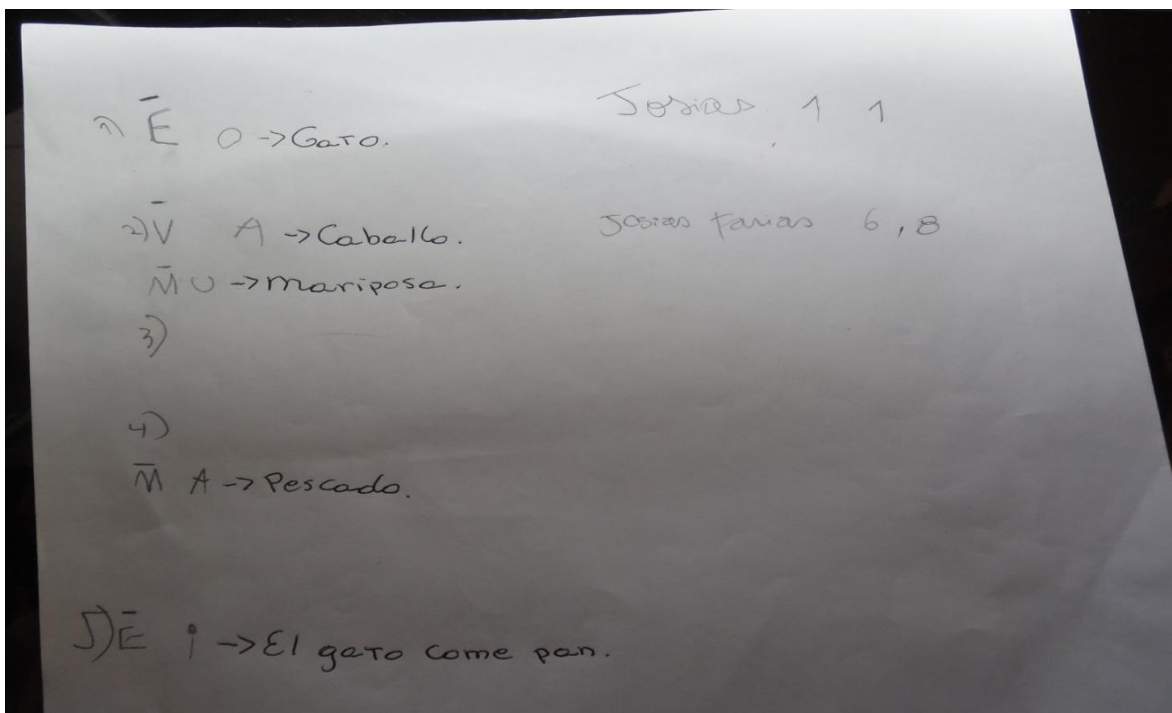 1) Ē O -> Gato. Josias 1 1
2) V̄ A -> Caballo. Josias Farias 6,8
M̄ U -> mariposa.
3)
4)
M̄ A -> Pescado.
5) Ē i -> El gato come pan.